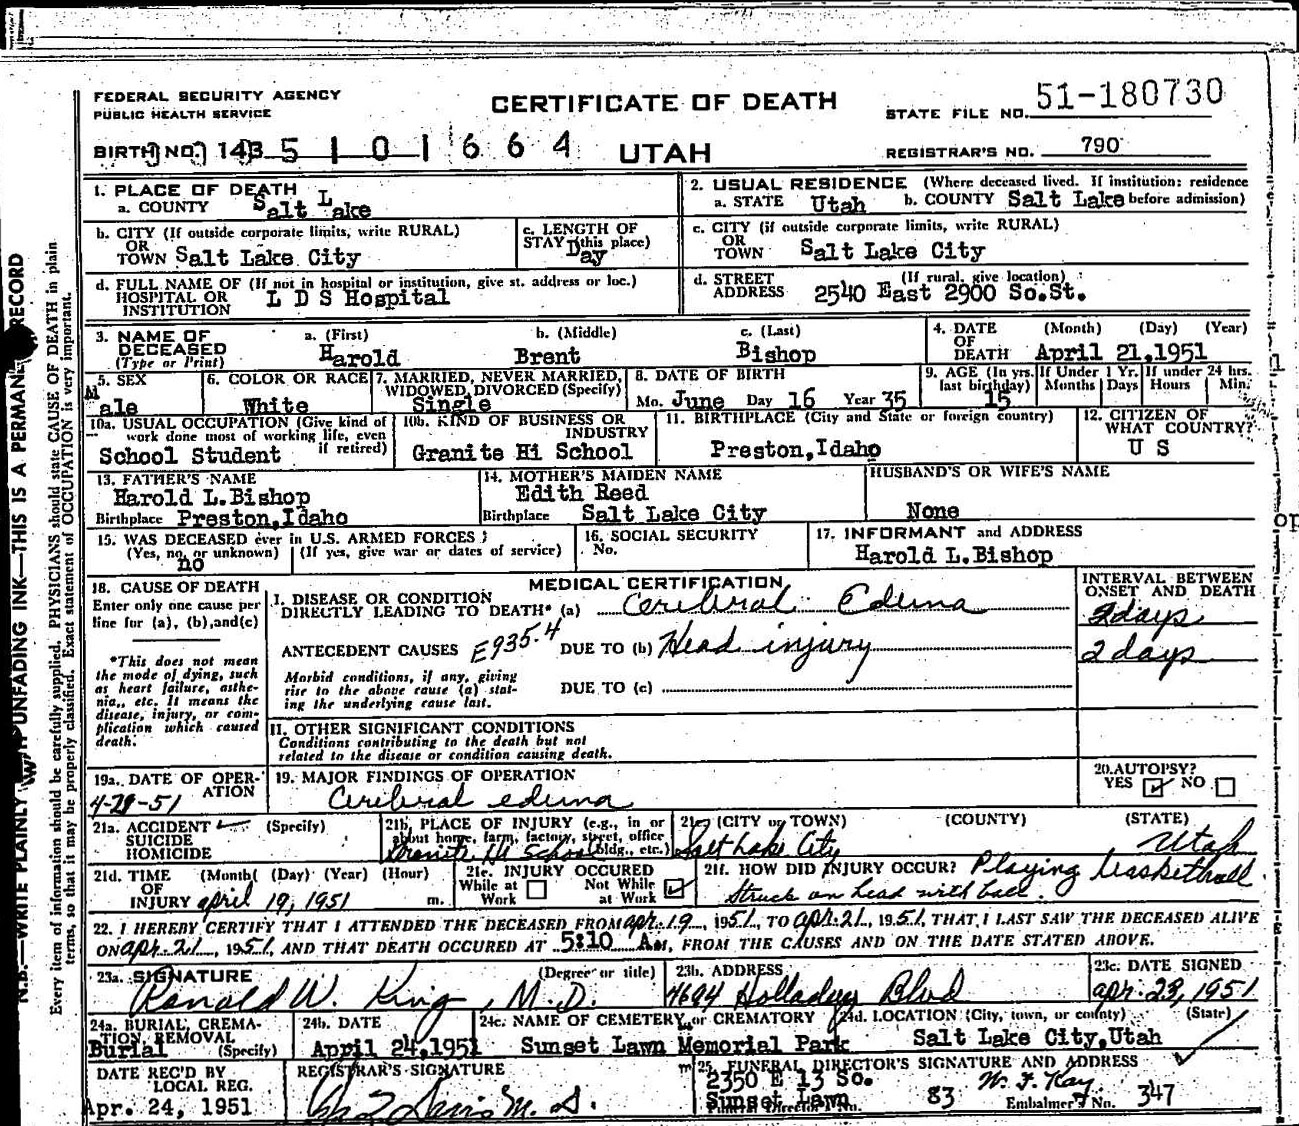 FEDERAL SECURITY AGENCY
PUBLIC HEALTH SERVICE
CERTIFICATE OF DEATH
STATE FILE NO. 51-180730
BIRTH NO. 143 5 1 0 1 6 6 4
UTAH
REGISTRAR'S NO. 790
1. PLACE OF DEATH
a. COUNTY Salt Lake
2. USUAL RESIDENCE (Where deceased lived. If institution: residence
a. STATE Utah b. COUNTY Salt Lake before admission)
b. CITY (If outside corporate limits, write RURAL)
OR
TOWN Salt Lake City
c. LENGTH OF
STAY (this place)
Day
c. CITY (if outside corporate limits, write RURAL)
OR
TOWN Salt Lake City
d. FULL NAME OF (If not in hospital or institution, give st. address or loc.)
HOSPITAL OR
INSTITUTION L D S Hospital
d. STREET (If rural, give location)
ADDRESS 2540 East 2900 So.St.
3. NAME OF
DECEASED
(Type or Print)
a. (First) b. (Middle) c. (Last)
Harold Brent Bishop
4. DATE (Month) (Day) (Year)
OF
DEATH April 21,1951
5. SEX
Male
6. COLOR OR RACE
White
7. MARRIED, NEVER MARRIED,
WIDOWED, DIVORCED (Specify)
Single
8. DATE OF BIRTH
Mo. June Day 16 Year 35
9. AGE (In yrs.
last birthday)
15
If Under 1 Yr.
Months Days
If under 24 hrs.
Hours Min.
10a. USUAL OCCUPATION (Give kind of
work done most of working life, even
if retired)
School Student
10b. KIND OF BUSINESS OR
INDUSTRY
Granite Hi School
11. BIRTHPLACE (City and State or foreign country)
Preston,Idaho
12. CITIZEN OF
WHAT COUNTRY?
U S
13. FATHER'S NAME
Harold L.Bishop
Birthplace Preston,Idaho
14. MOTHER'S MAIDEN NAME
Edith Reed
Birthplace Salt Lake City
HUSBAND'S OR WIFE'S NAME
None
15. WAS DECEASED ever in U.S. ARMED FORCES?
(Yes, no, or unknown) (If yes, give war or dates of service)
no
16. SOCIAL SECURITY
No.
17. INFORMANT and ADDRESS
Harold L.Bishop
18. CAUSE OF DEATH
Enter only one cause per
line for (a), (b),and(c)
*This does not mean
the mode of dying, such
as heart failure, asthe-
nia, etc. It means the
disease, injury, or com-
plication which caused
death.
MEDICAL CERTIFICATION
I. DISEASE OR CONDITION
DIRECTLY LEADING TO DEATH* (a) Cerebral Edema
ANTECEDENT CAUSES E935.4 DUE TO (b) Head injury
Morbid conditions, if any, giving
rise to the above cause (a) stat-
ing the underlying cause last.
DUE TO (c)
II. OTHER SIGNIFICANT CONDITIONS
Conditions contributing to the death but not
related to the disease or condition causing death.
INTERVAL BETWEEN
ONSET AND DEATH
2 days
2 days
19a. DATE OF OPER-
ATION
4-29-51
19. MAJOR FINDINGS OF OPERATION
Cerebral edema
20. AUTOPSY?
YES NO
21a. ACCIDENT (Specify)
SUICIDE
HOMICIDE
21b. PLACE OF INJURY (e.g., in or
about home, farm, factory, street, office
bldg., etc.)
Granite Hi School
21c. (CITY or TOWN) (COUNTY) (STATE)
Salt Lake City Utah
21d. TIME (Month) (Day) (Year) (Hour)
OF
INJURY april 19, 1951 m.
21e. INJURY OCCURED
While at Work
Not While at Work
21f. HOW DID INJURY OCCUR? Playing basketball.
Struck on head with ball.
22. I HEREBY CERTIFY THAT I ATTENDED THE DECEASED FROM apr. 19, 1951, TO apr. 21, 1951, THAT I LAST SAW THE DECEASED ALIVE
ON apr. 21, 1951, AND THAT DEATH OCCURED AT 5:10 AM, FROM THE CAUSES AND ON THE DATE STATED ABOVE.
23a. SIGNATURE (Degree or title)
Ronald W. King, M.D.
23b. ADDRESS
4694 Holladay Blvd
23c. DATE SIGNED
apr. 23, 1951
24a. BURIAL, CREMA-
TION, REMOVAL
Burial (Specify)
24b. DATE
April 24,1951
24c. NAME OF CEMETERY or CREMATORY
Sunset Lawn Memorial Park
24d. LOCATION (City, town, or county) (State)
Salt Lake City,Utah
DATE REC'D BY
LOCAL REG.
Apr. 24, 1951
REGISTRAR'S SIGNATURE
25. FUNERAL DIRECTOR'S SIGNATURE AND ADDRESS
2350 E 13 So.
Sunset Lawn 83 W. F. Kay
Embalmer's No. 347
N.B.—WRITE PLAINLY WITH UNFADING INK—THIS IS A PERMANENT RECORD
Every item of information should be carefully supplied. PHYSICIANS should state CAUSE OF DEATH in plain
terms, so that it may be properly classified. Exact statement of OCCUPATION is very important.